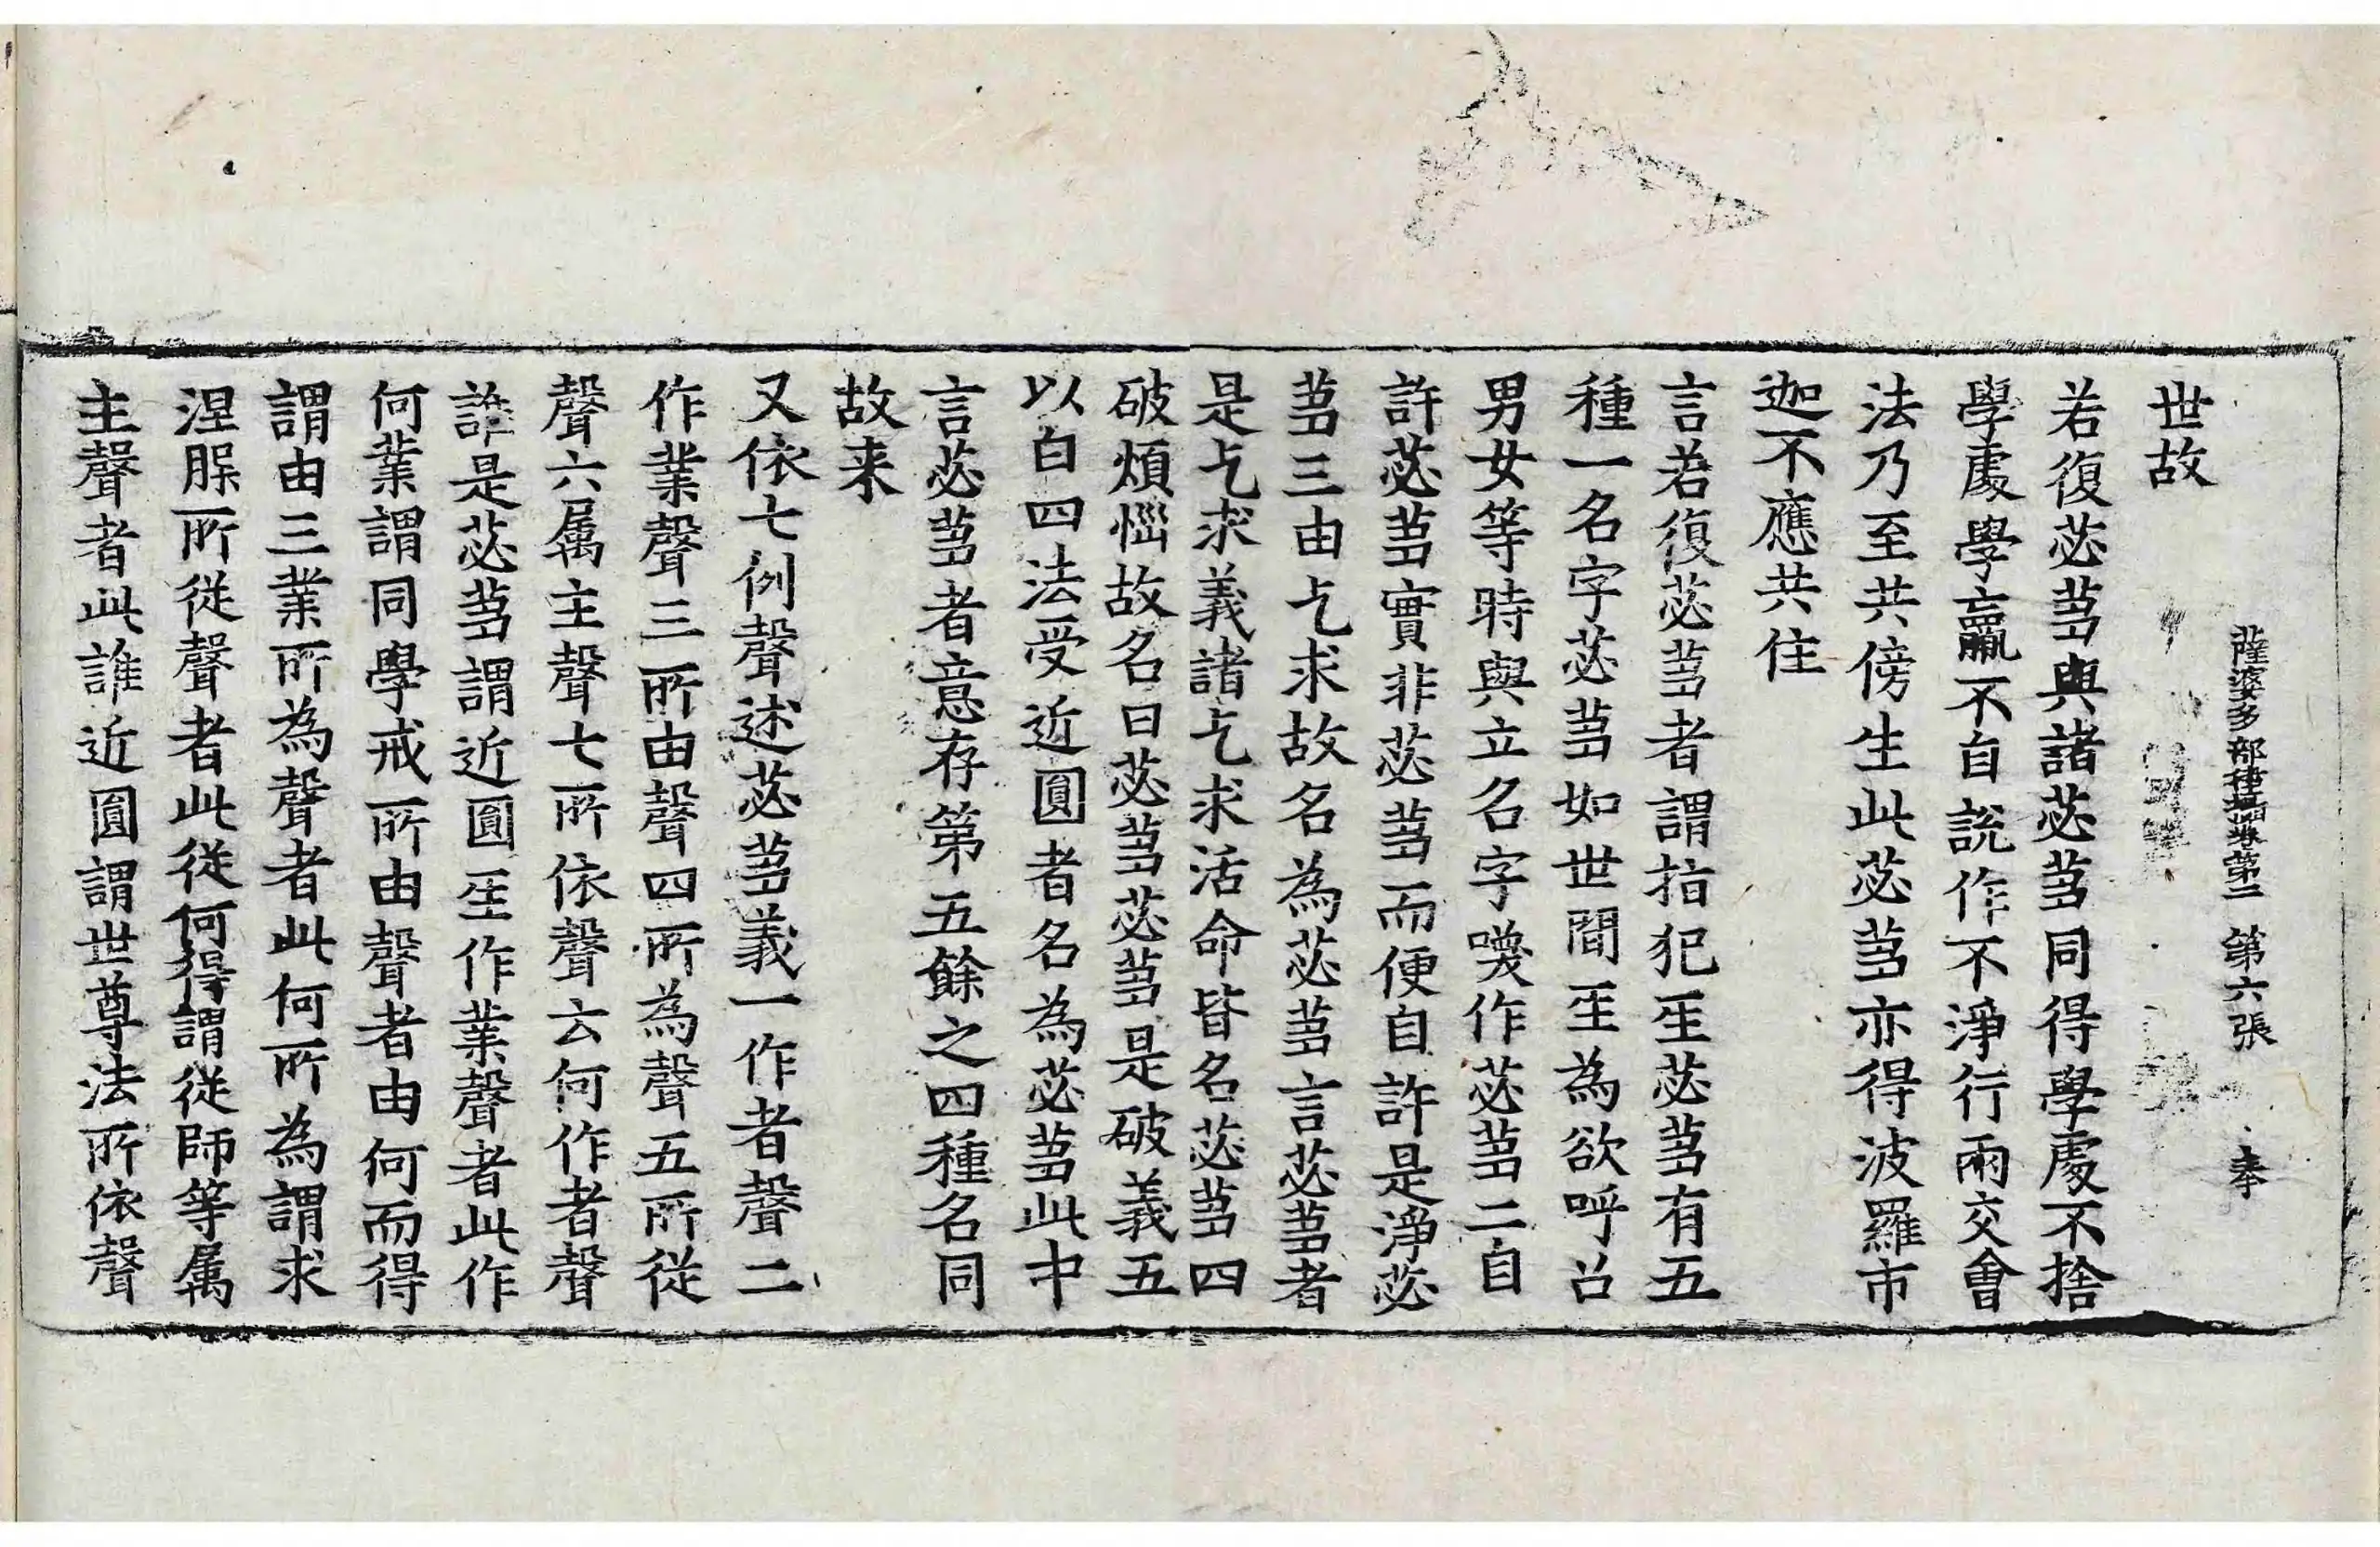 薩婆多部律攝卷第二　第六張　奉
世故
若復苾蒭與諸苾蒭同得學處不捨
學處學羸不自説作不淨行兩交會
法乃至共傍生此苾蒭亦得波羅市
迦不應共住
言若復苾蒭者謂指犯𤯔苾蒭有五
種一名字苾蒭如世間𤯔為欲呼召
男女等時與立名字喚作苾蒭二自
許苾蒭實非苾蒭而便自許是淨苾
蒭三由乞求故名為苾蒭言苾蒭者
是乞求義諸乞求活命皆名苾蒭四
破煩惱故名曰苾蒭苾蒭是破義五
以白四法受近圓者名為苾蒭此中
言苾蒭者意存第五餘之四種名同
故来
又依七例聲述苾蒭義一作者聲二
作業聲三所由聲四所為聲五所從
聲六属主聲七所依聲云何作者聲
誰是苾蒭謂近圓𤯔作業聲者此作
何業謂同學戒所由聲者由何而得
謂由三業所為聲者此何所為謂求
涅槃所從聲者此從何得謂從師等属
主聲者此誰近圓謂世尊法所依聲